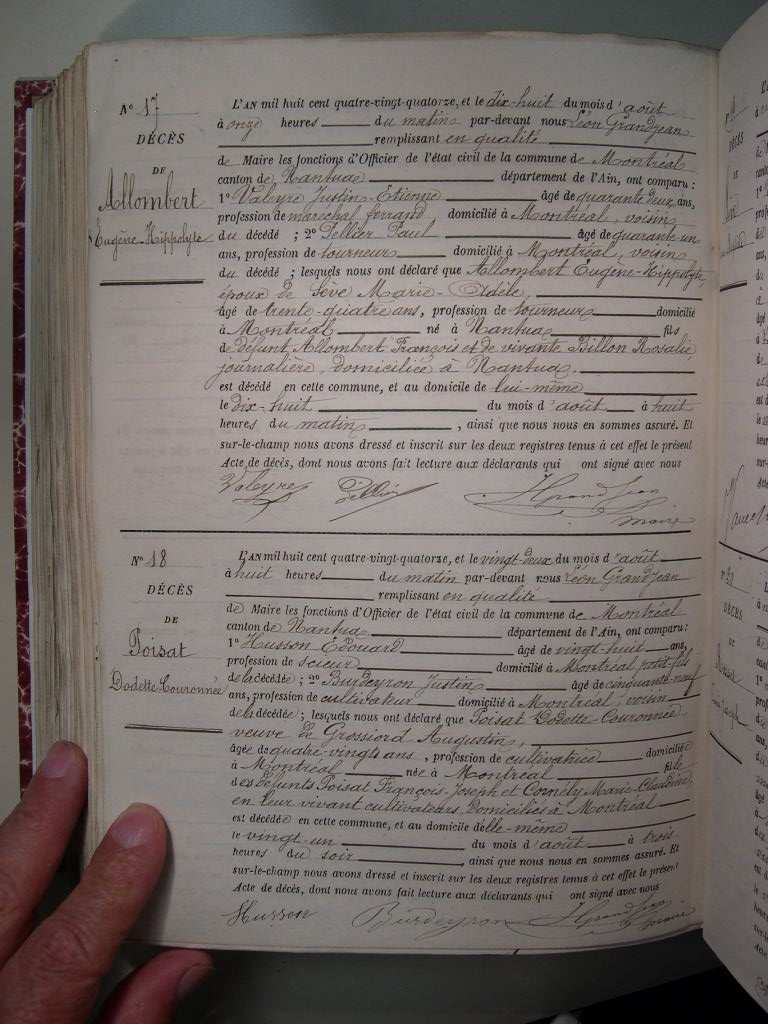 N° 17
DÉCÈS
DE
Allombert
Eugène-Hippolyte
L'AN mil huit cent quatre-vingt-quatorze, et le dix-huit du mois d'août
à onze heures du matin par-devant nous Léon Grandjean
remplissant en qualité
de Maire les fonctions d'Officier de l'état civil de la commune de Montréal
canton de Nantua département de l'Ain, ont comparu :
1° Valeyre Justin-Etienne âgé de quarante deux ans,
profession de maréchal ferrand, domicilié à Montréal, voisin
du décédé ; 2° Pellier Paul âgé de quarante un
ans, profession de tourneur domicilié à Montréal, voisin
du décédé ; lesquels nous ont déclaré que Allombert Eugène-Hippolyte
époux de Sève Marie-Adèle,
âgé de trente-quatre ans, profession de tourneur domicilié
à Montréal né à Nantua fils
de défunt Allombert François et de vivante Billon Rosalie
journalière, domiciliée à Nantua,
est décédé en cette commune, et au domicile de lui-même
le dix-huit du mois d'août à huit
heures du matin, ainsi que nous nous en sommes assuré. Et
sur-le-champ nous avons dressé et inscrit sur les deux registres tenus à cet effet le présent
Acte de décès, dont nous avons fait lecture aux déclarants qui ont signé avec nous
Valeyre Grandjean
maire
N° 18
DÉCÈS
DE
Poisat
Dodette-Couronnée
L'AN mil huit cent quatre-vingt-quatorze, et le vingt-deux du mois d'août
à huit heures du matin par-devant nous Léon Grandjean
remplissant en qualité
de Maire les fonctions d'Officier de l'état civil de la commune de Montréal
canton de Nantua département de l'Ain, ont comparu :
1° Husson Edouard âgé de vingt-huit ans,
profession de scieur domicilié à Montréal petit-fils
de la décédée ; 2° Burdeyron Justin âgé de cinquante-neuf
ans, profession de cultivateur domicilié à Montréal, voisin
de la décédée ; lesquels nous ont déclaré que Poisat Dodette-Couronnée
veuve de Grossiord Augustin,
âgée de quatre-vingts ans, profession de cultivatrice domiciliée
à Montréal née à Montréal fille
des défunts Poisat François-Joseph et Comely Marie-Claudine
en leur vivant cultivateurs, Domiciliés à Montréal
est décédée en cette commune, et au domicile d'elle-même
le vingt-un du mois d'août à trois
heures du soir, ainsi que nous nous en sommes assuré. Et
sur-le-champ nous avons dressé et inscrit sur les deux registres tenus à cet effet le présent
Acte de décès, dont nous avons fait lecture aux déclarants qui ont signé avec nous
Husson Burdeyron Grandjean
maire